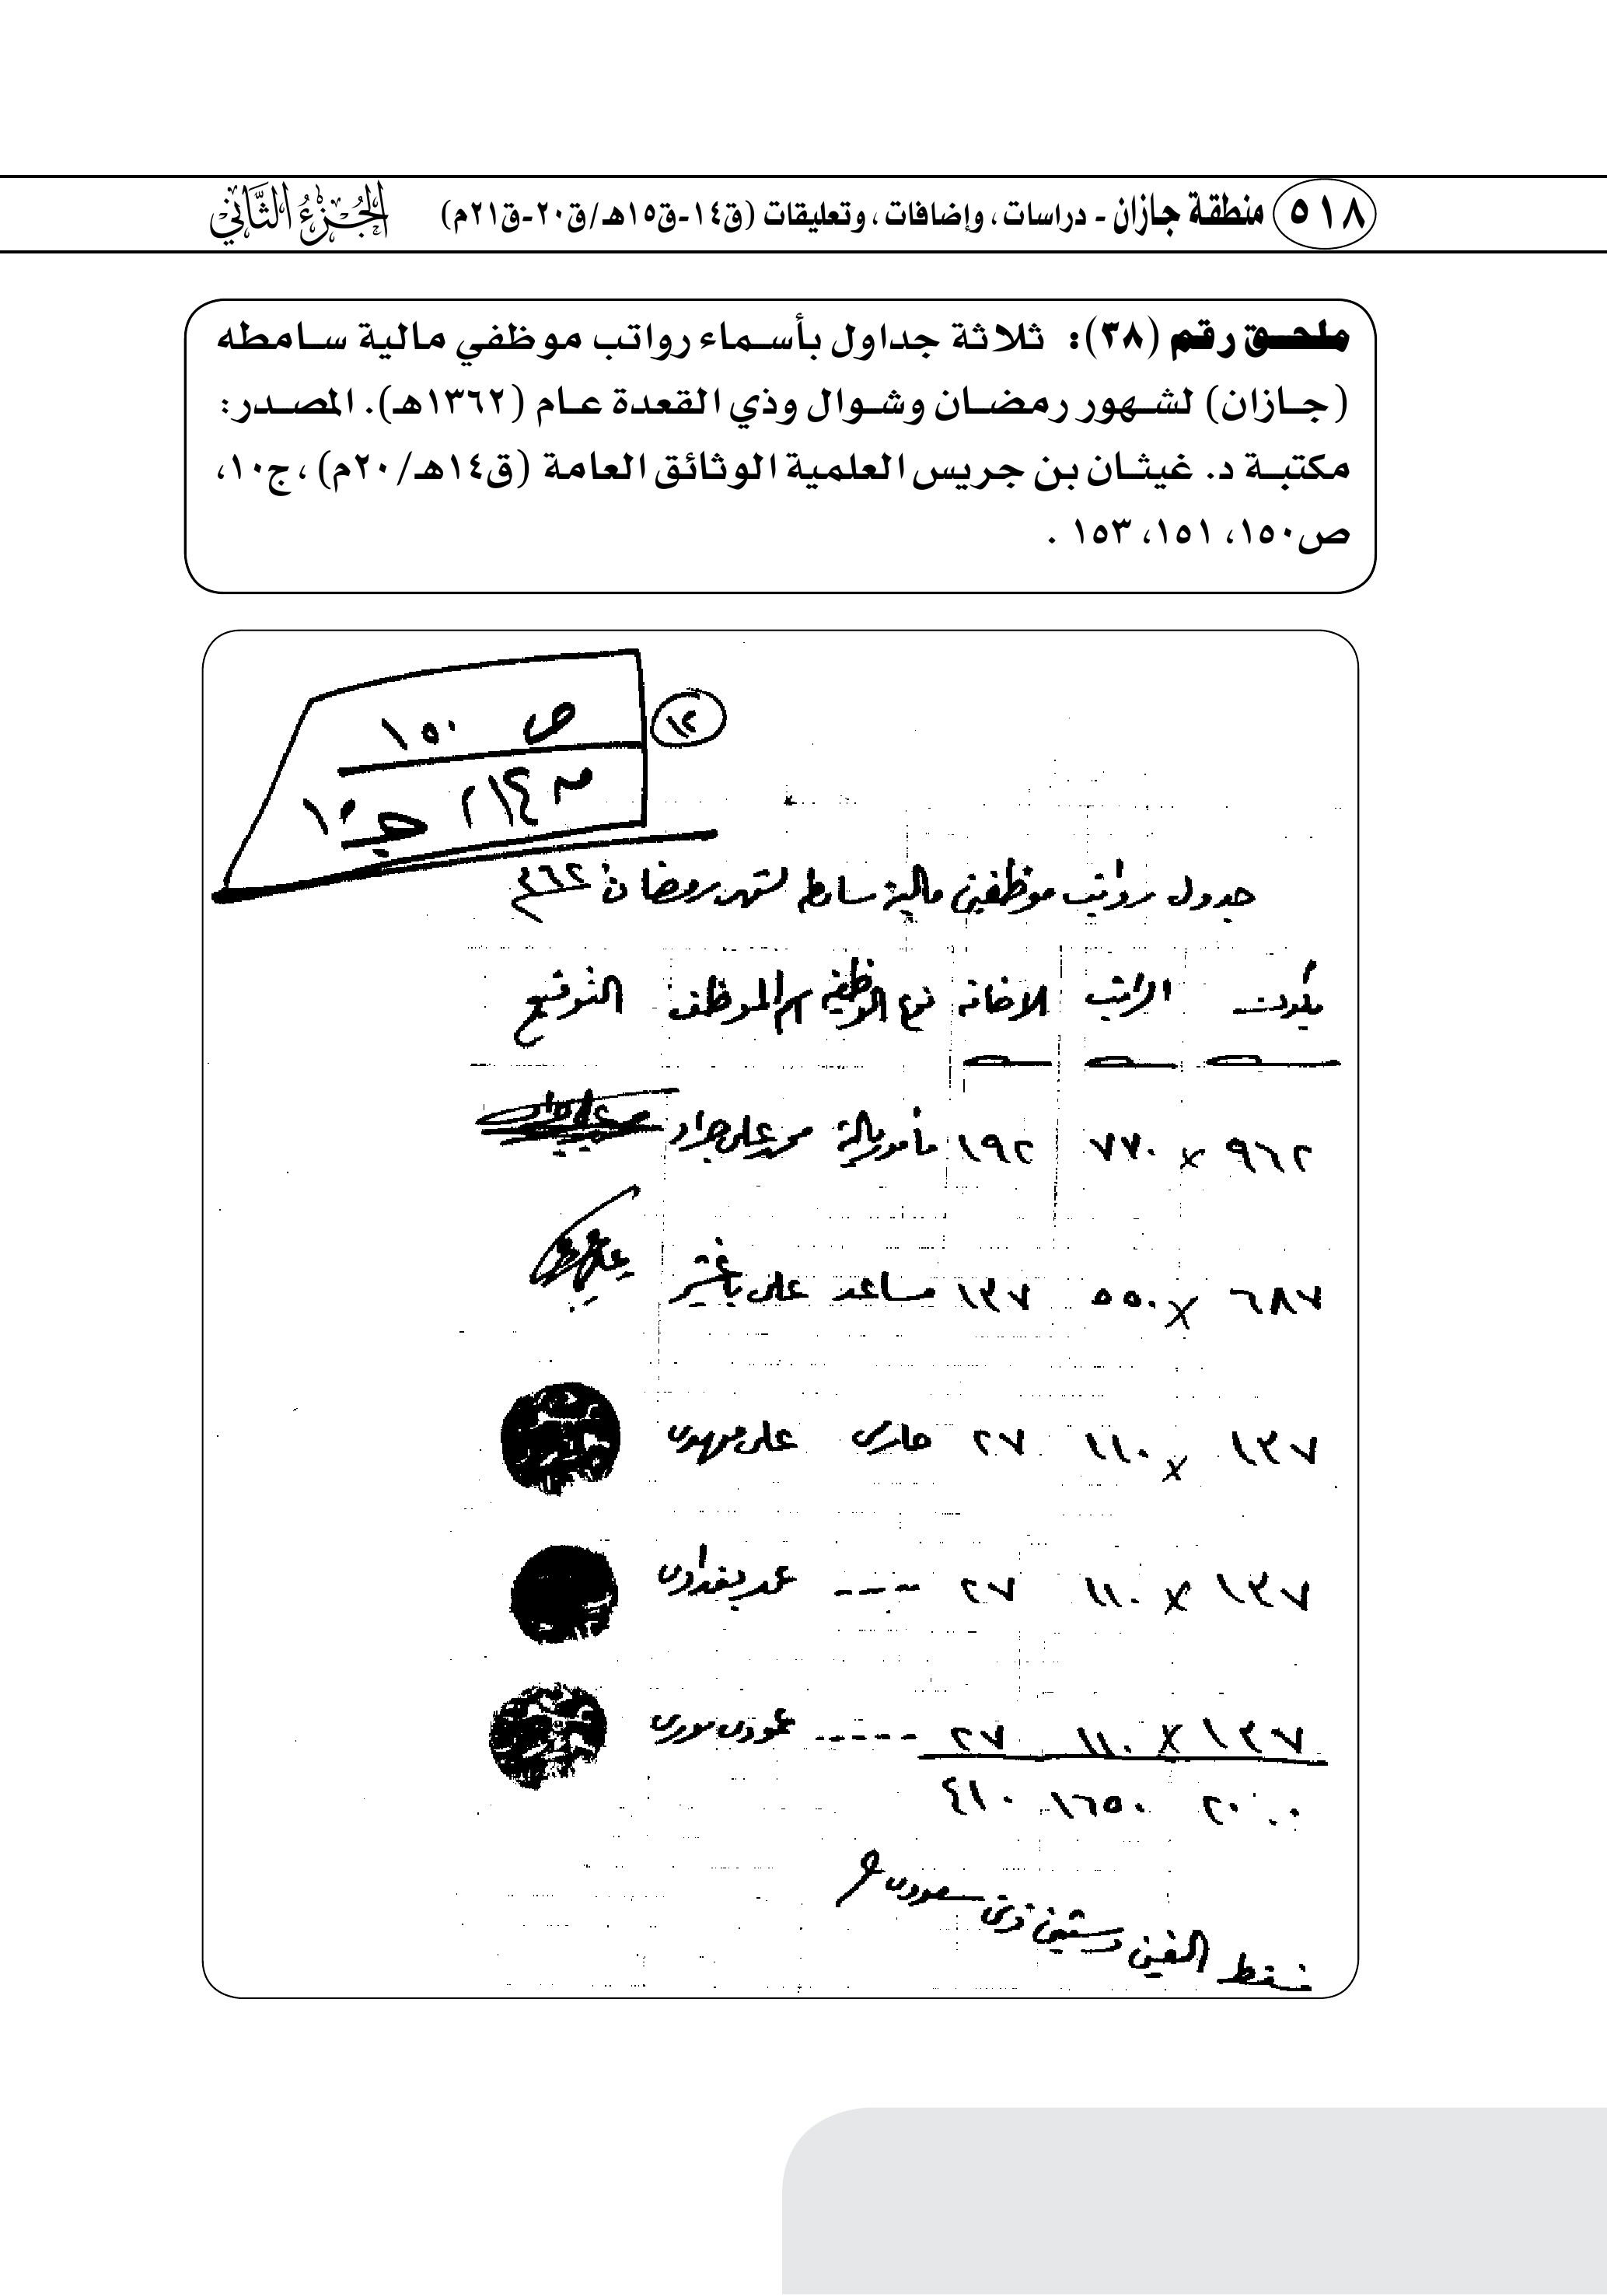 ٥١٨ منطقة جازان - دراسات، وإضافات، وتعليقات (ق١٤-ق١٥هـ/ق٢٠-ق٢١م) الجزء الثاني
ملحق رقم (٣٨): ثلاثة جداول بأسماء رواتب موظفي مالية سامطه
(جازان) لشهور رمضان وشوال وذي القعدة عام (١٣٦٢هـ). المصدر:
مكتبة د. غيثان بن جريس العلمية الوثائق العامة (ق١٤هـ/٢٠م)، ج١٠،
ص١٥٠، ١٥١، ١٥٣ .
١٢
ص ١٥٠
ج ١٠
جدول رواتب موظفين مالية سامطه لشهر رمضان ٣٦٢
الراتب الاضافه نوع الوظيفه اسم الموظف التوقيع
٩٦٢ × ٧٧٠ ١٩٢ مأمور مالية محمد علي جراد
٦٨٧ × ٥٥٠ ١٣٧ مساعد على باعشير
١٣٧ × ١١٠ ٢٧ حارس على مهدى
١٣٧ × ١١٠ ٢٧ ---- بغدادى
١٣٧ × ١١٠ ٢٧ -----
٢٠٦٠ ١٦٥٠ ٤١٠
فقط الفين وستين قرش سعودى